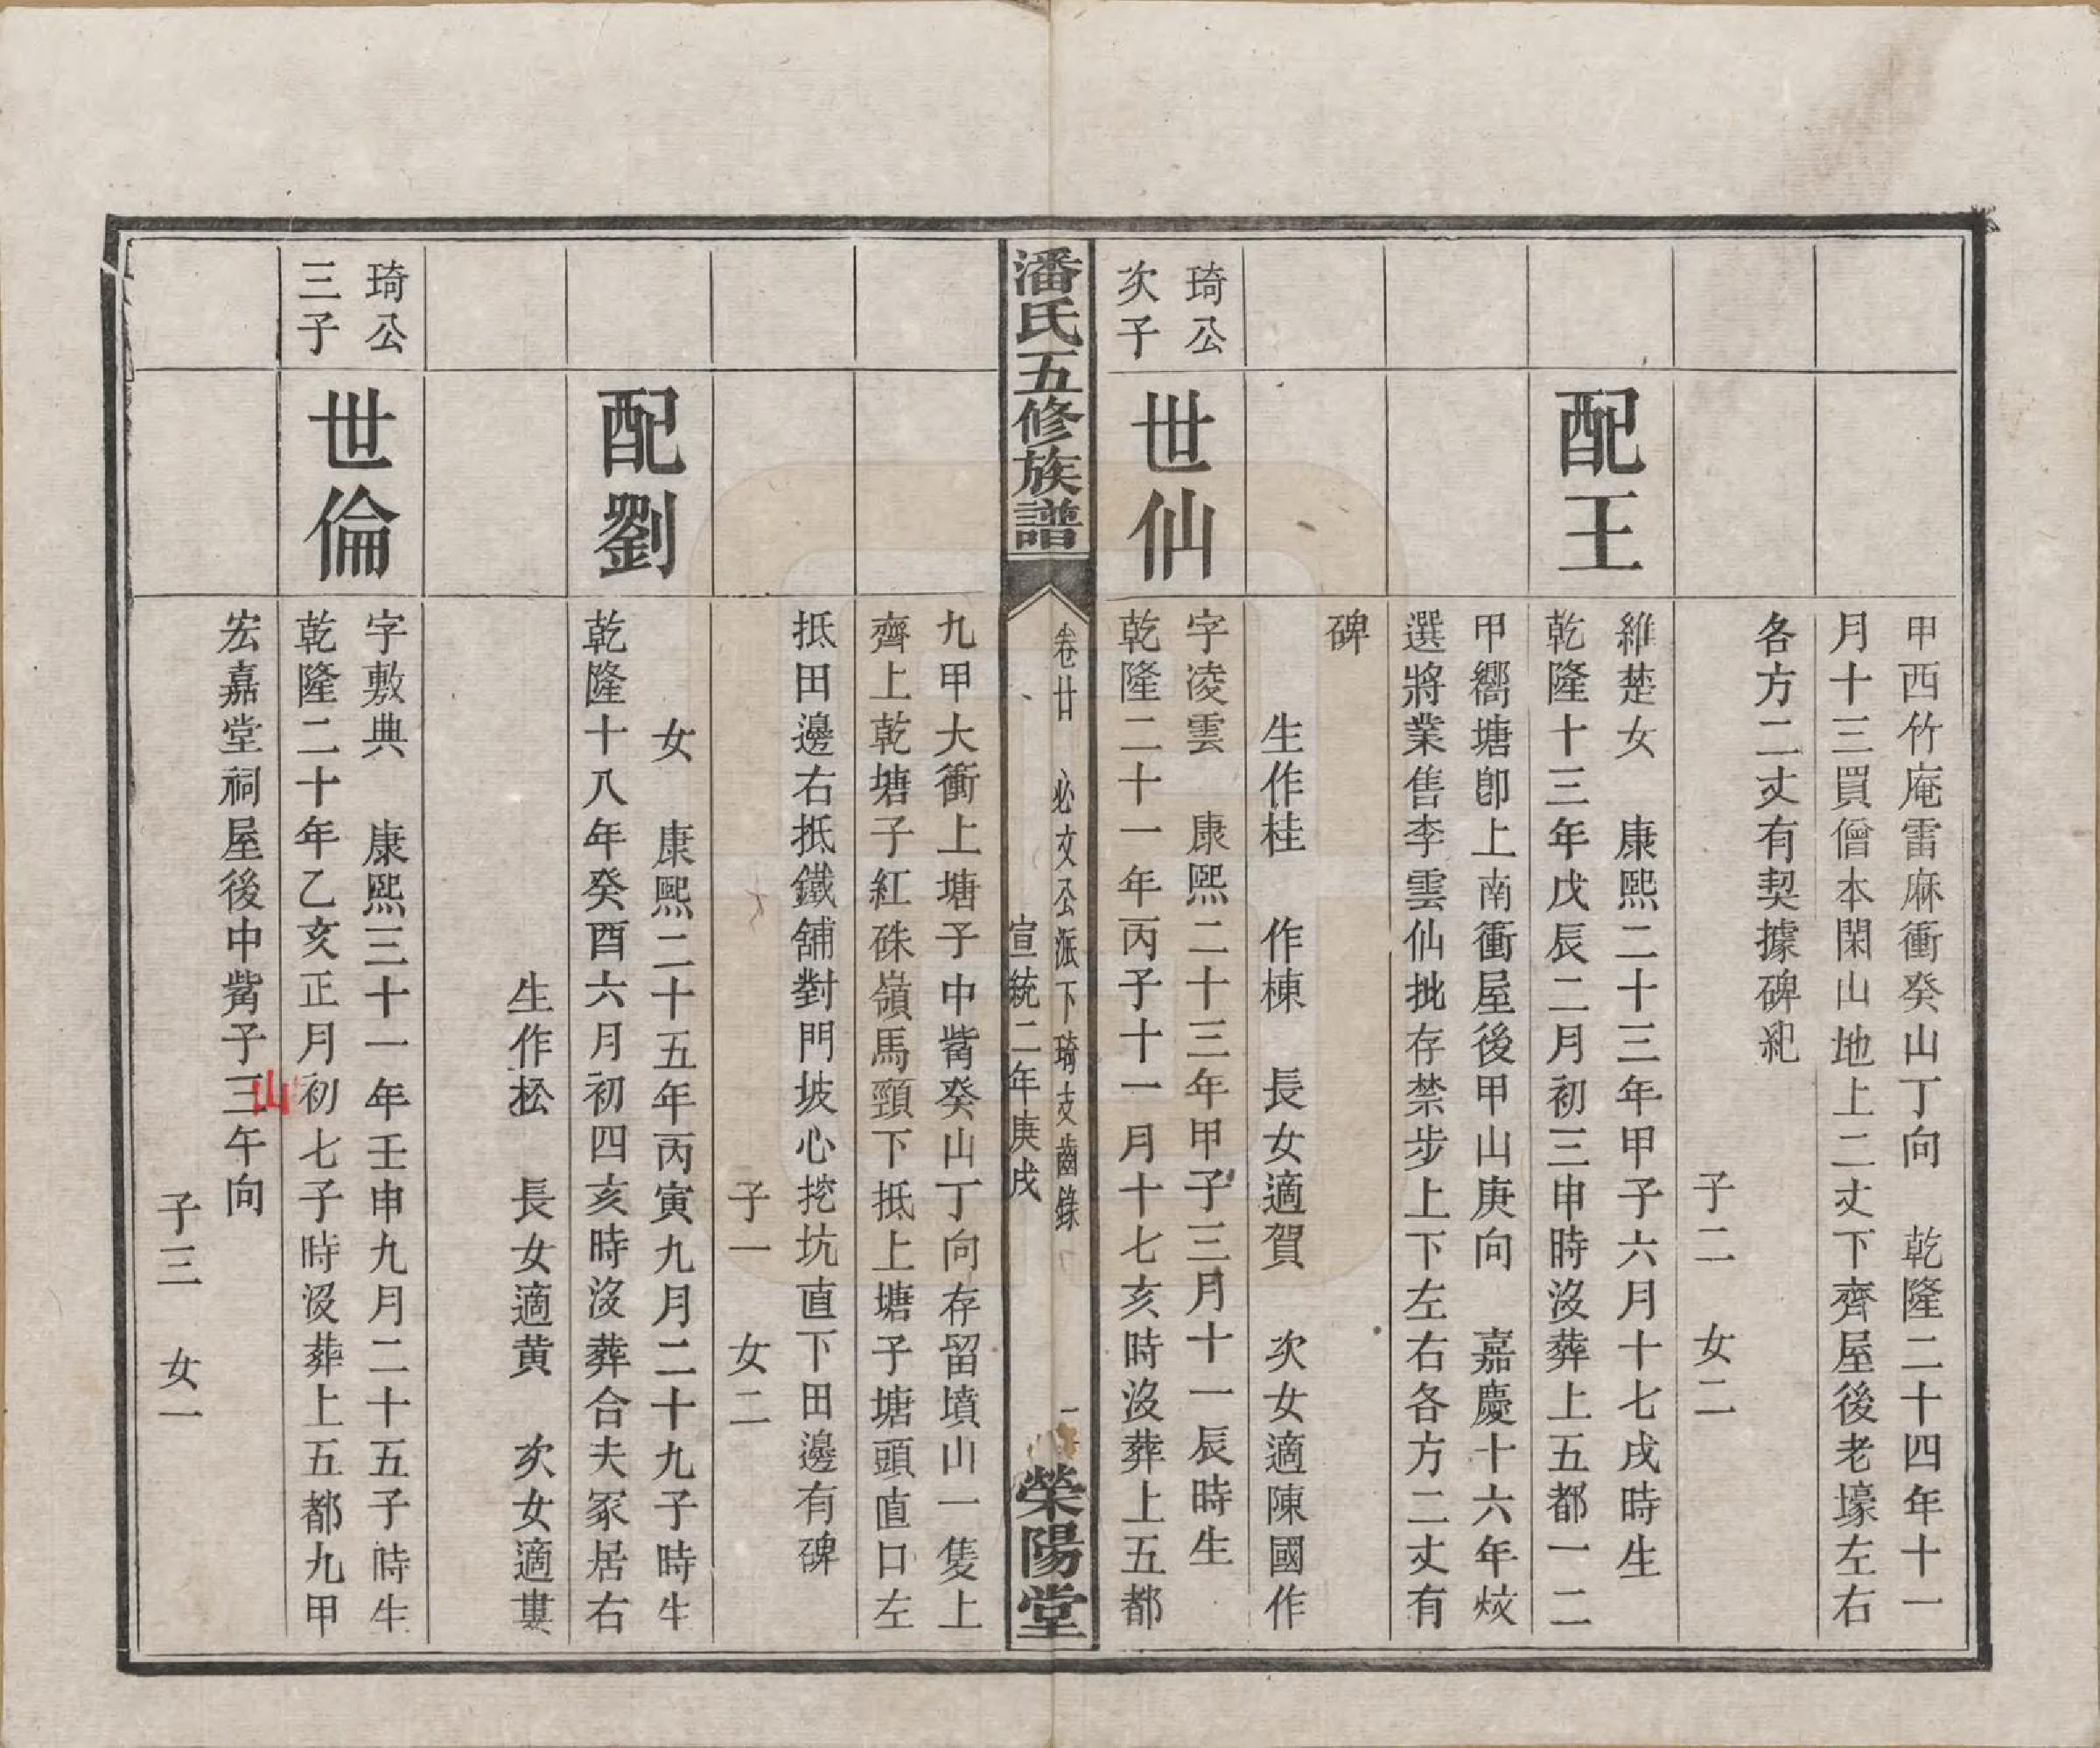 甲西竹庵雷麻衝癸山丁向　乾隆二十四年十一
月十三買僧本閑山地上二丈下齊屋後老壕左右
各方二丈有契據碑紀
子二　女二
配王
維楚女　康熙二十三年甲子六月十七戌時生
乾隆十三年戊辰二月初三申時沒葬上五都一二
甲嚮塘卽上南衝屋後甲山庚向　嘉慶十六年烄
選將業售李雲仙批存禁步上下左右各方二丈有
碑
生作桂　作棟　長女適賀　次女適陳國作
琦公
次子
世仙
字凌雲　康熙二十三年甲子三月十一辰時生
乾隆二十一年丙子十一月十七亥時沒葬上五都
潘氏五修族譜
卷廿　必文公派下琦支齒錄
宣統二年庚戌
一
榮陽堂
九甲大衝上塘子中嘴癸山丁向存留墳山一隻上
齊上乾塘子紅硃嶺馬頸下抵上塘子塘頭直口左
抵田邊右抵鐵舖對門坡心挖坑直下田邊有碑
子一　女二
配劉
女　康熙二十五年丙寅九月二十九子時生
乾隆十八年癸酉六月初四亥時沒葬合夫冢居右
生作松　長女適黄　次女適婁
琦公
三子
世倫
字敷典　康熙三十一年壬申九月二十五子時生
乾隆二十年乙亥正月初七子時沒葬上五都九甲
宏嘉堂祠屋後中嘴子三午向
山
子三　女一